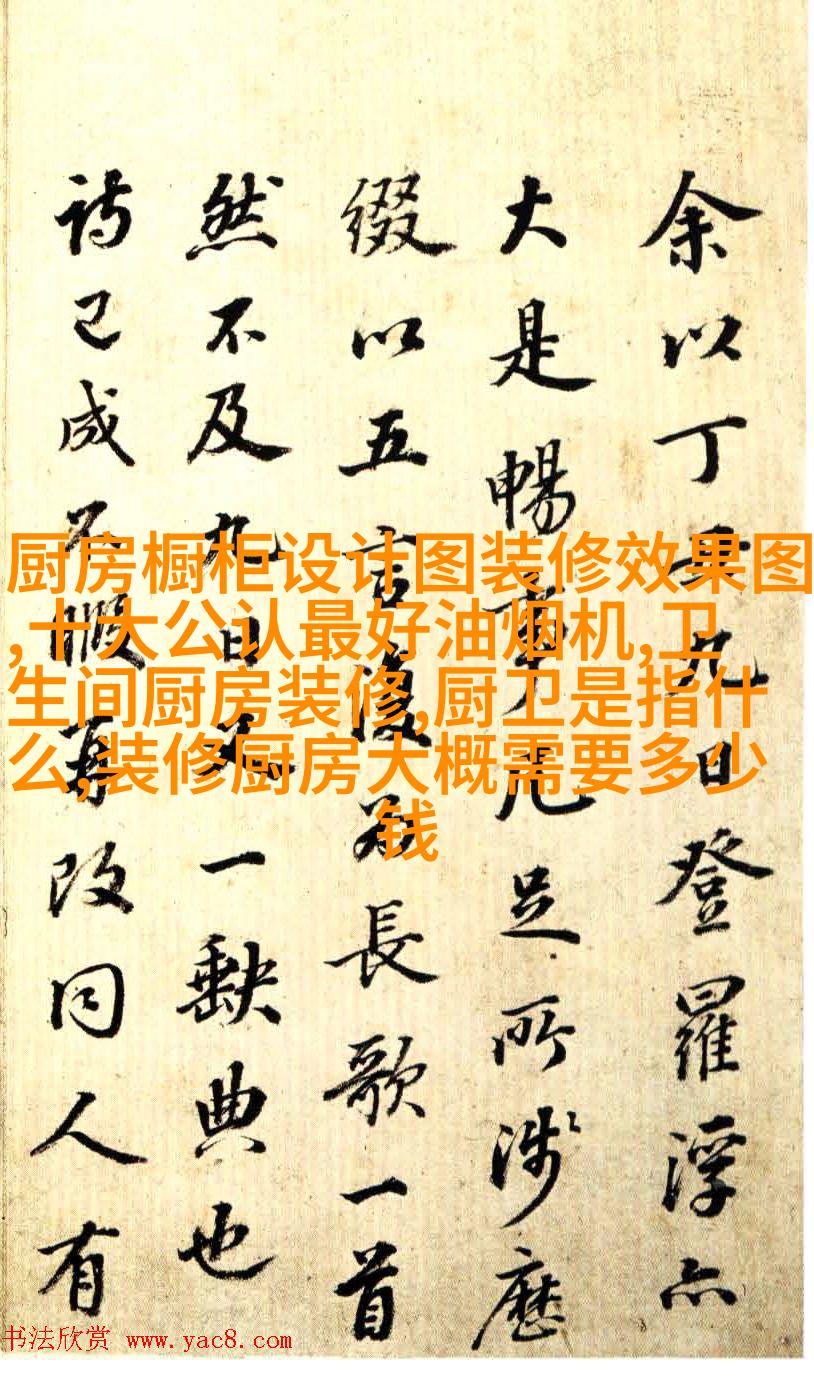 余以丁九日登羅浮亦
大是暢事凡足所涉歷
綴以五言復為長歌一首
然不及九日一缺典也
詩已成不暇再改同人有
厨房橱柜设计图装修效果图
,十大公认最好油烟机,卫
生间厨房装修,厨卫是指什
么,装修厨房大概需要多少
钱
书法欣赏 www.yac8.com